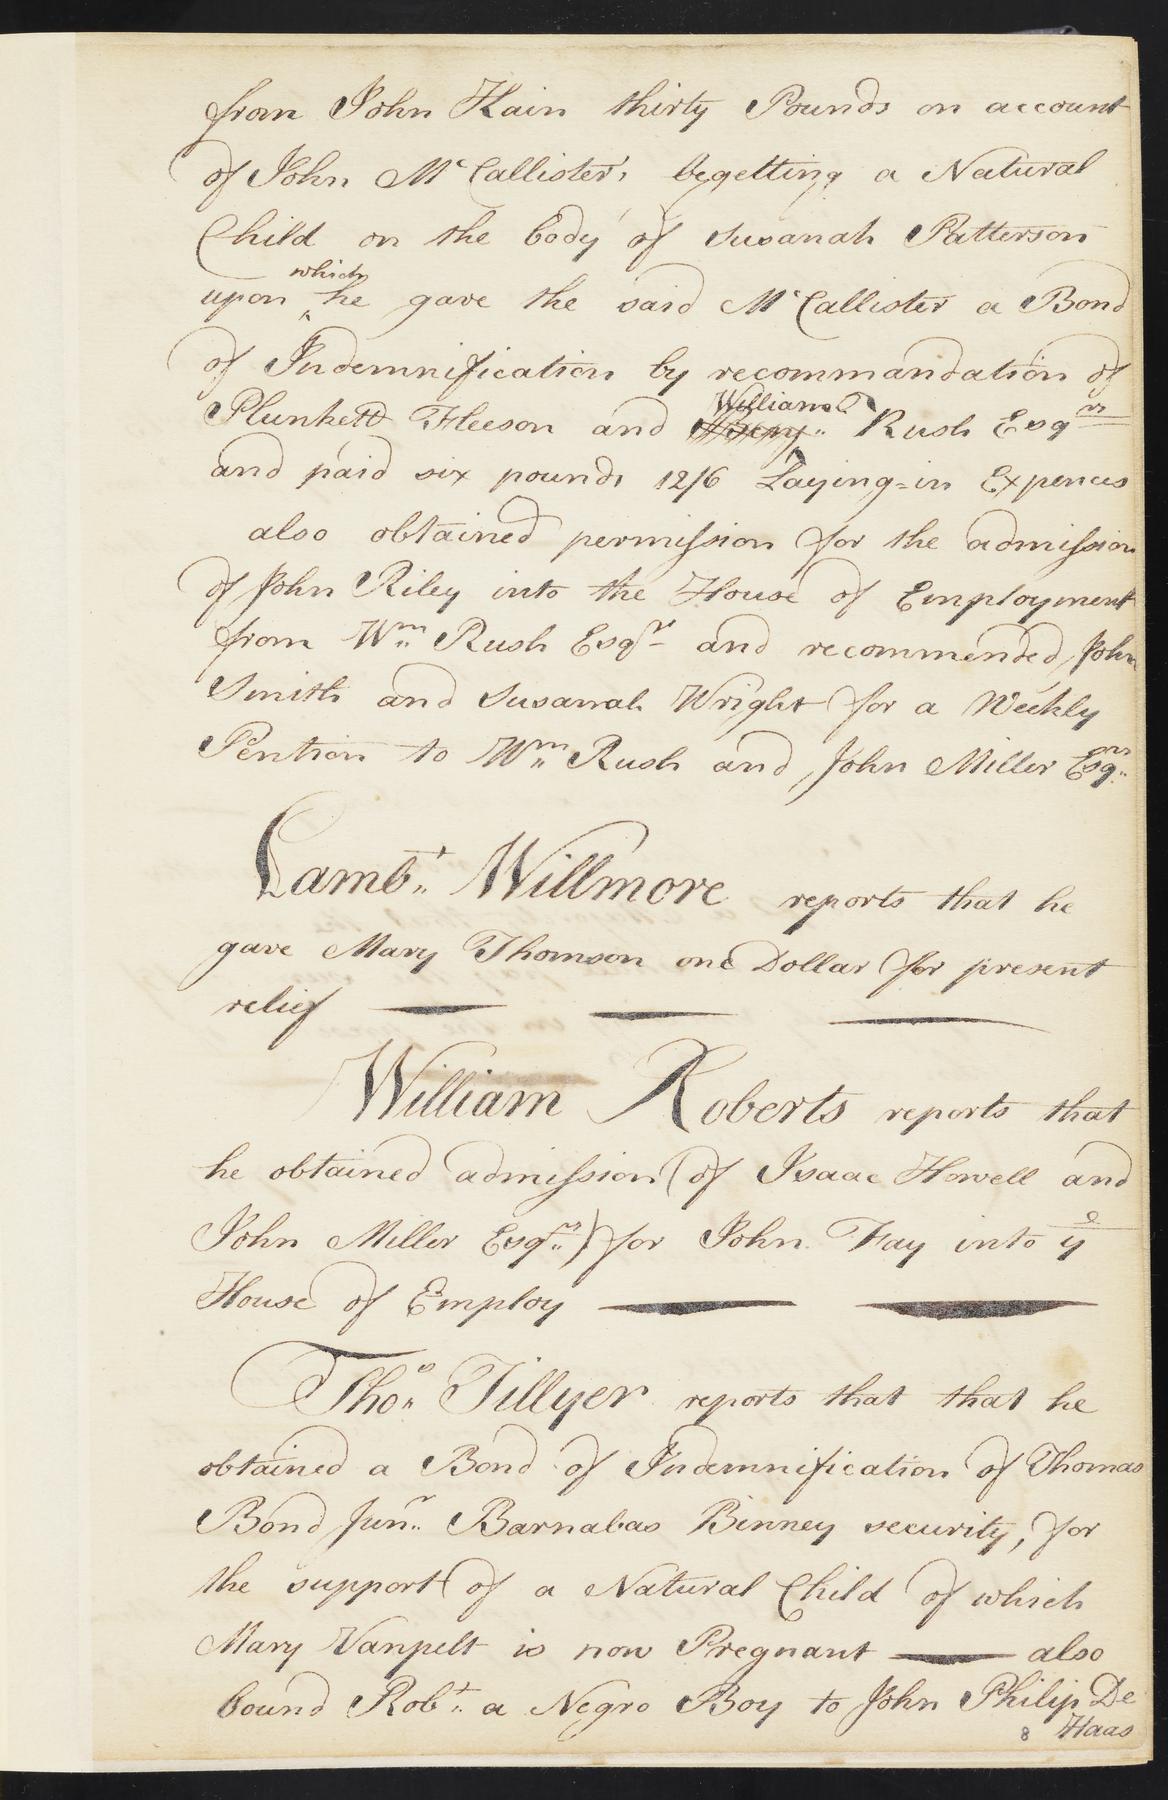 from John Kain thirty Pounds on account
of John McCallister's begetting a Natural
Child on the body of Susanah Patterson
upon which he gave the said McCallister a Bond
of Indemnification by recommandation of
Plunkett Fleeson and William Rush Esqrs
and paid six pounds 12/6 Laying=in Expences
also obtained permission for the admission
of John Riley into the House of Employment
from Wm Rush Esqr and recommended John
Smith and Susanah Wright for a Weekly
Pention to Wm Rush and John Miller Esqrs
Lambt Willmore reports that he
gave Mary Thomson one Dollar for present
relief
William Roberts reports that
he obtained admission (of Isaac Howell and
John Miller Esqrs) for John Fay into ye
House of Employ
Thos Tillyer reports that that he
obtained a Bond of Indemnification of Thomas
Bond Junr Barnabas Binney security, for
the support of a Natural Child of which
Mary Vanpelt is now Pregnant — also
bound Robt a Negro Boy to John Philip De
8 Haas